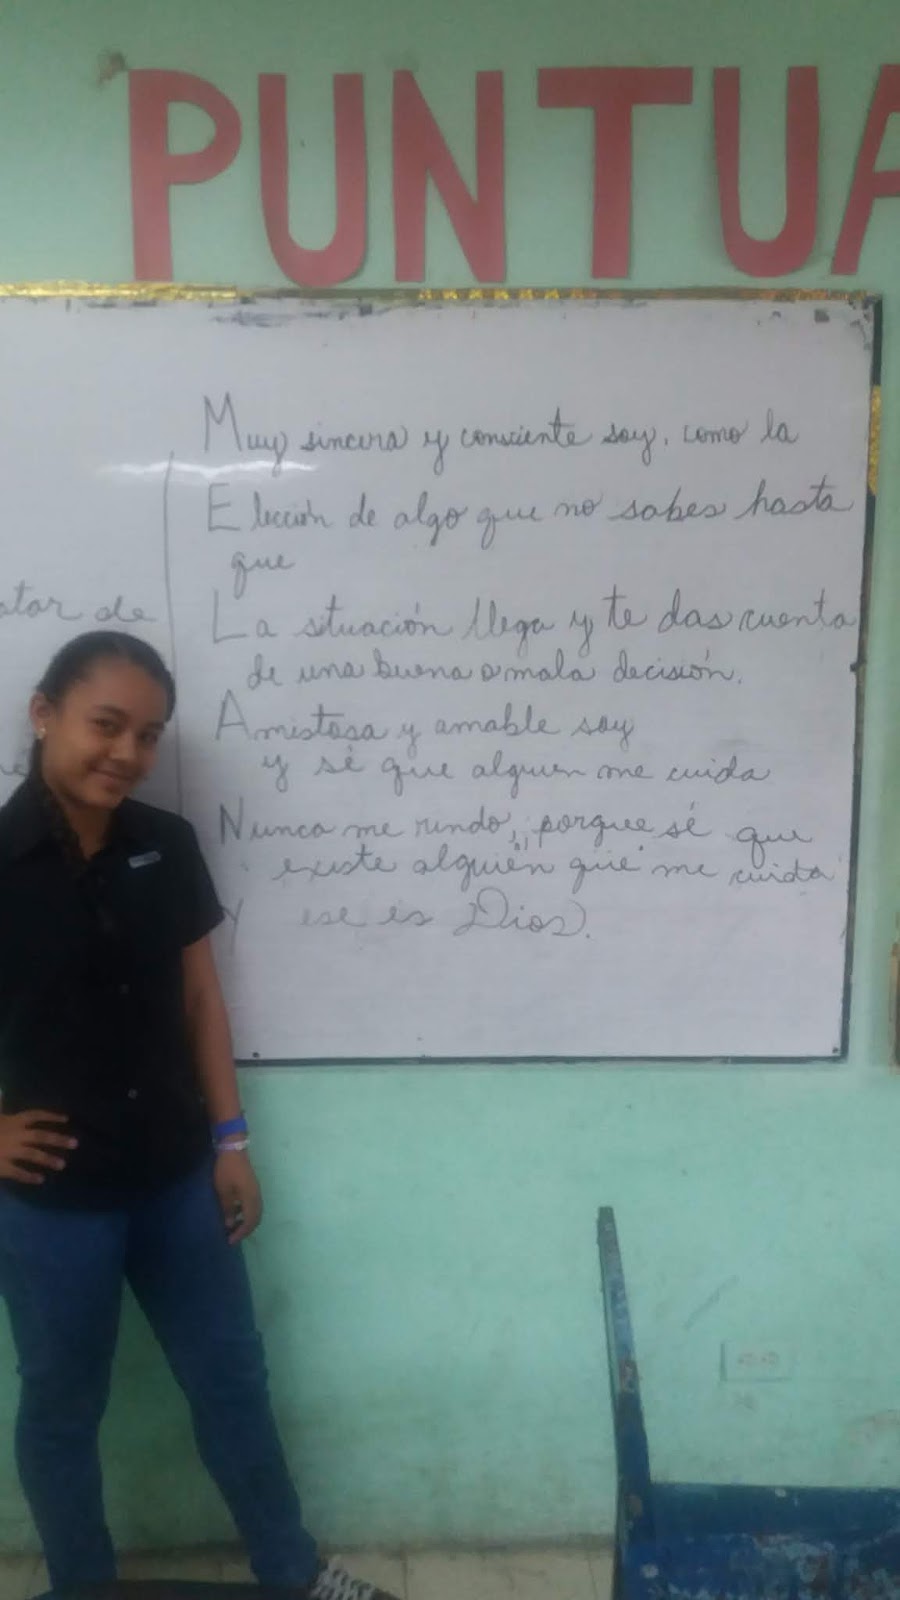 PUNTUA
Muy sincera y consciente soy, como la
Elección de algo que no sabes hasta
que
La situación llega y te das cuenta
de una buena o mala decisión.
Amistosa y amable soy
y sé que alguien me cuida
Nunca me rindo, porque sé que
existe alguien que me cuida
Y ese es Dios.
atar de